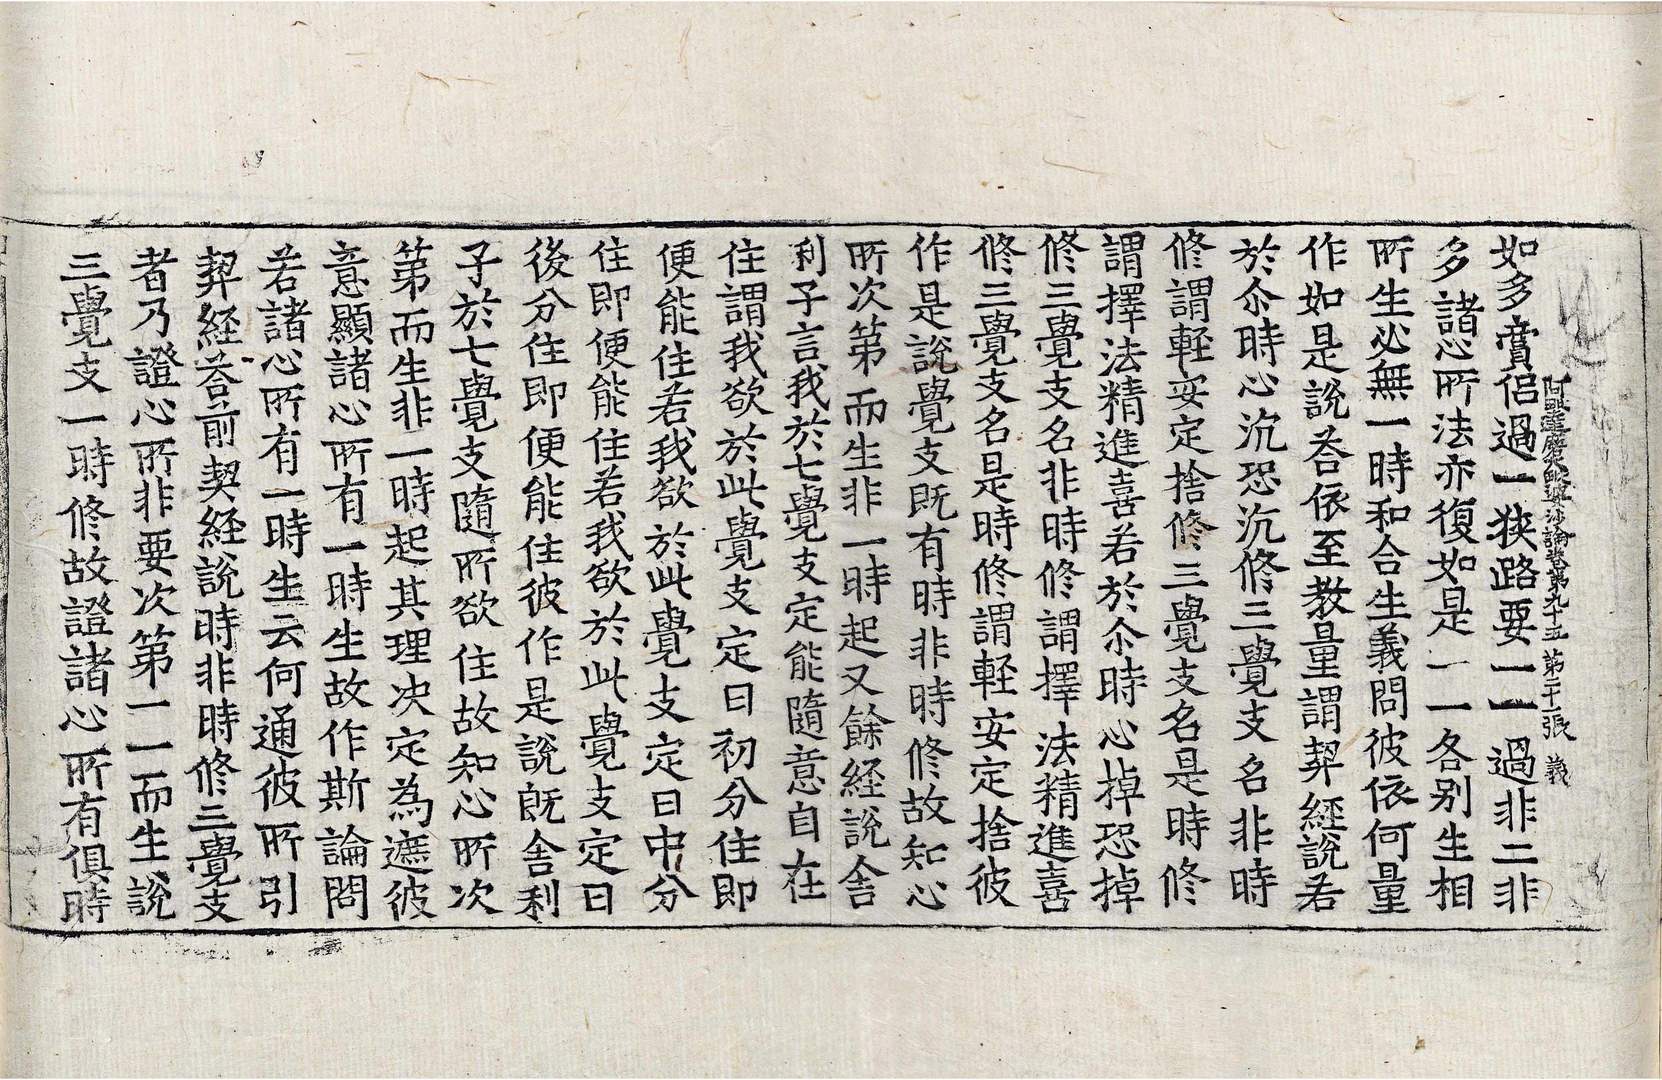 阿毗達磨大毗婆沙論卷第九十五 第二十張 義
如多賣侶過一狹路要一一過非二非
多諸心所法亦復如是一一各別生相
所生必無一時和合生義問彼依何量
作如是說荅依至教量謂契經說若
於尒時心沉恐沉修三覺支名非時
修謂輕妥定捨修三覺支名是時修
謂擇法精進喜若於尒時心掉恐掉
修三覺支名非時修謂擇法精進喜
修三覺支名是時修謂輕安定捨彼
作是說覺支既有時非時修故知心
所次第而生非一時起又餘經說舍
利子言我於七覺支定能隨意自在
住謂我欲於此覺支定日初分住即
便能住若我欲於此覺支定日中分
住即便能住若我欲於此覺支定日
後分住即便能住彼作是說既舍利
子於七覺支隨所欲住故知心所次
第而生非一時起其理决定為遮彼
意顯諸心所有一時生故作斯論問
若諸心所有一時生云何通彼所引
契經荅前契經說時非時修三覺支
者乃證心所非要次第一一而生說
三覺支一時修故證諸心所有俱時